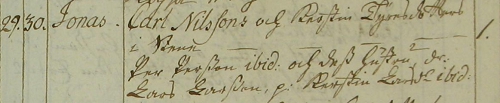 29. 30. Jonas. Carl Nilssons och Kerstin
i Stene 1.
Per Persson ibid: och dess hustru, dr:
Lars Larsson, p: Kerstin Larsdr ibid: